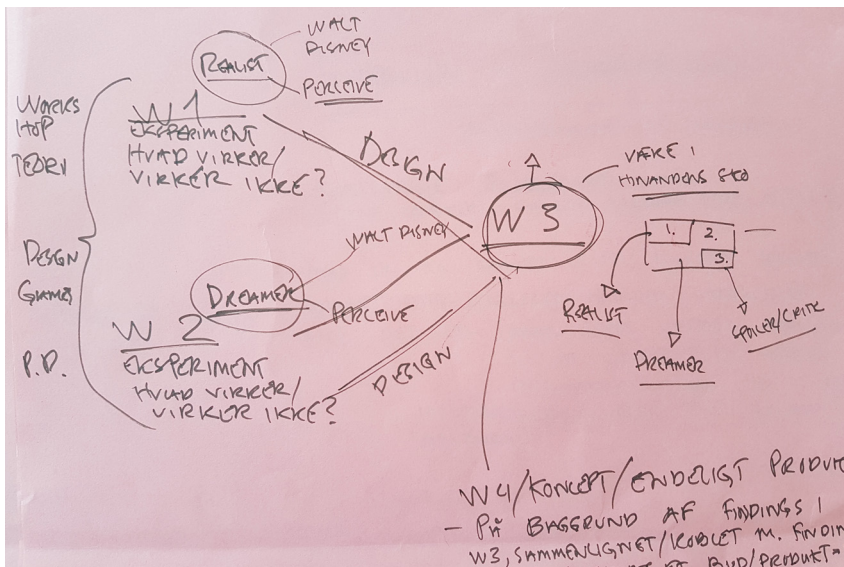 WORKS
HOP
TEORI
DESIGN
GAMES
P.D.
REALIST
WALT
DISNEY
PERCEIVE
W 1
EKSPERIMENT
HVAD VIRKER/
VIRKER IKKE?
DESIGN
DREAMER
WALT DISNEY
PERCEIVE
W 2
EKSPERIMENT
HVAD VIRKER/
VIRKER IKKE?
DESIGN
W 3
VÆRE I
HINANDENS SKO
1.
2.
3.
REALIST
DREAMER
SPOILER/CRITIC
W4/KONCEPT/ENDELIGT PRODUK
- PÅ BAGGRUND AF FINDINGS I
W3, SAMMENLIGNET/KOBLET M. FINDIN
BUD/PRODUKT